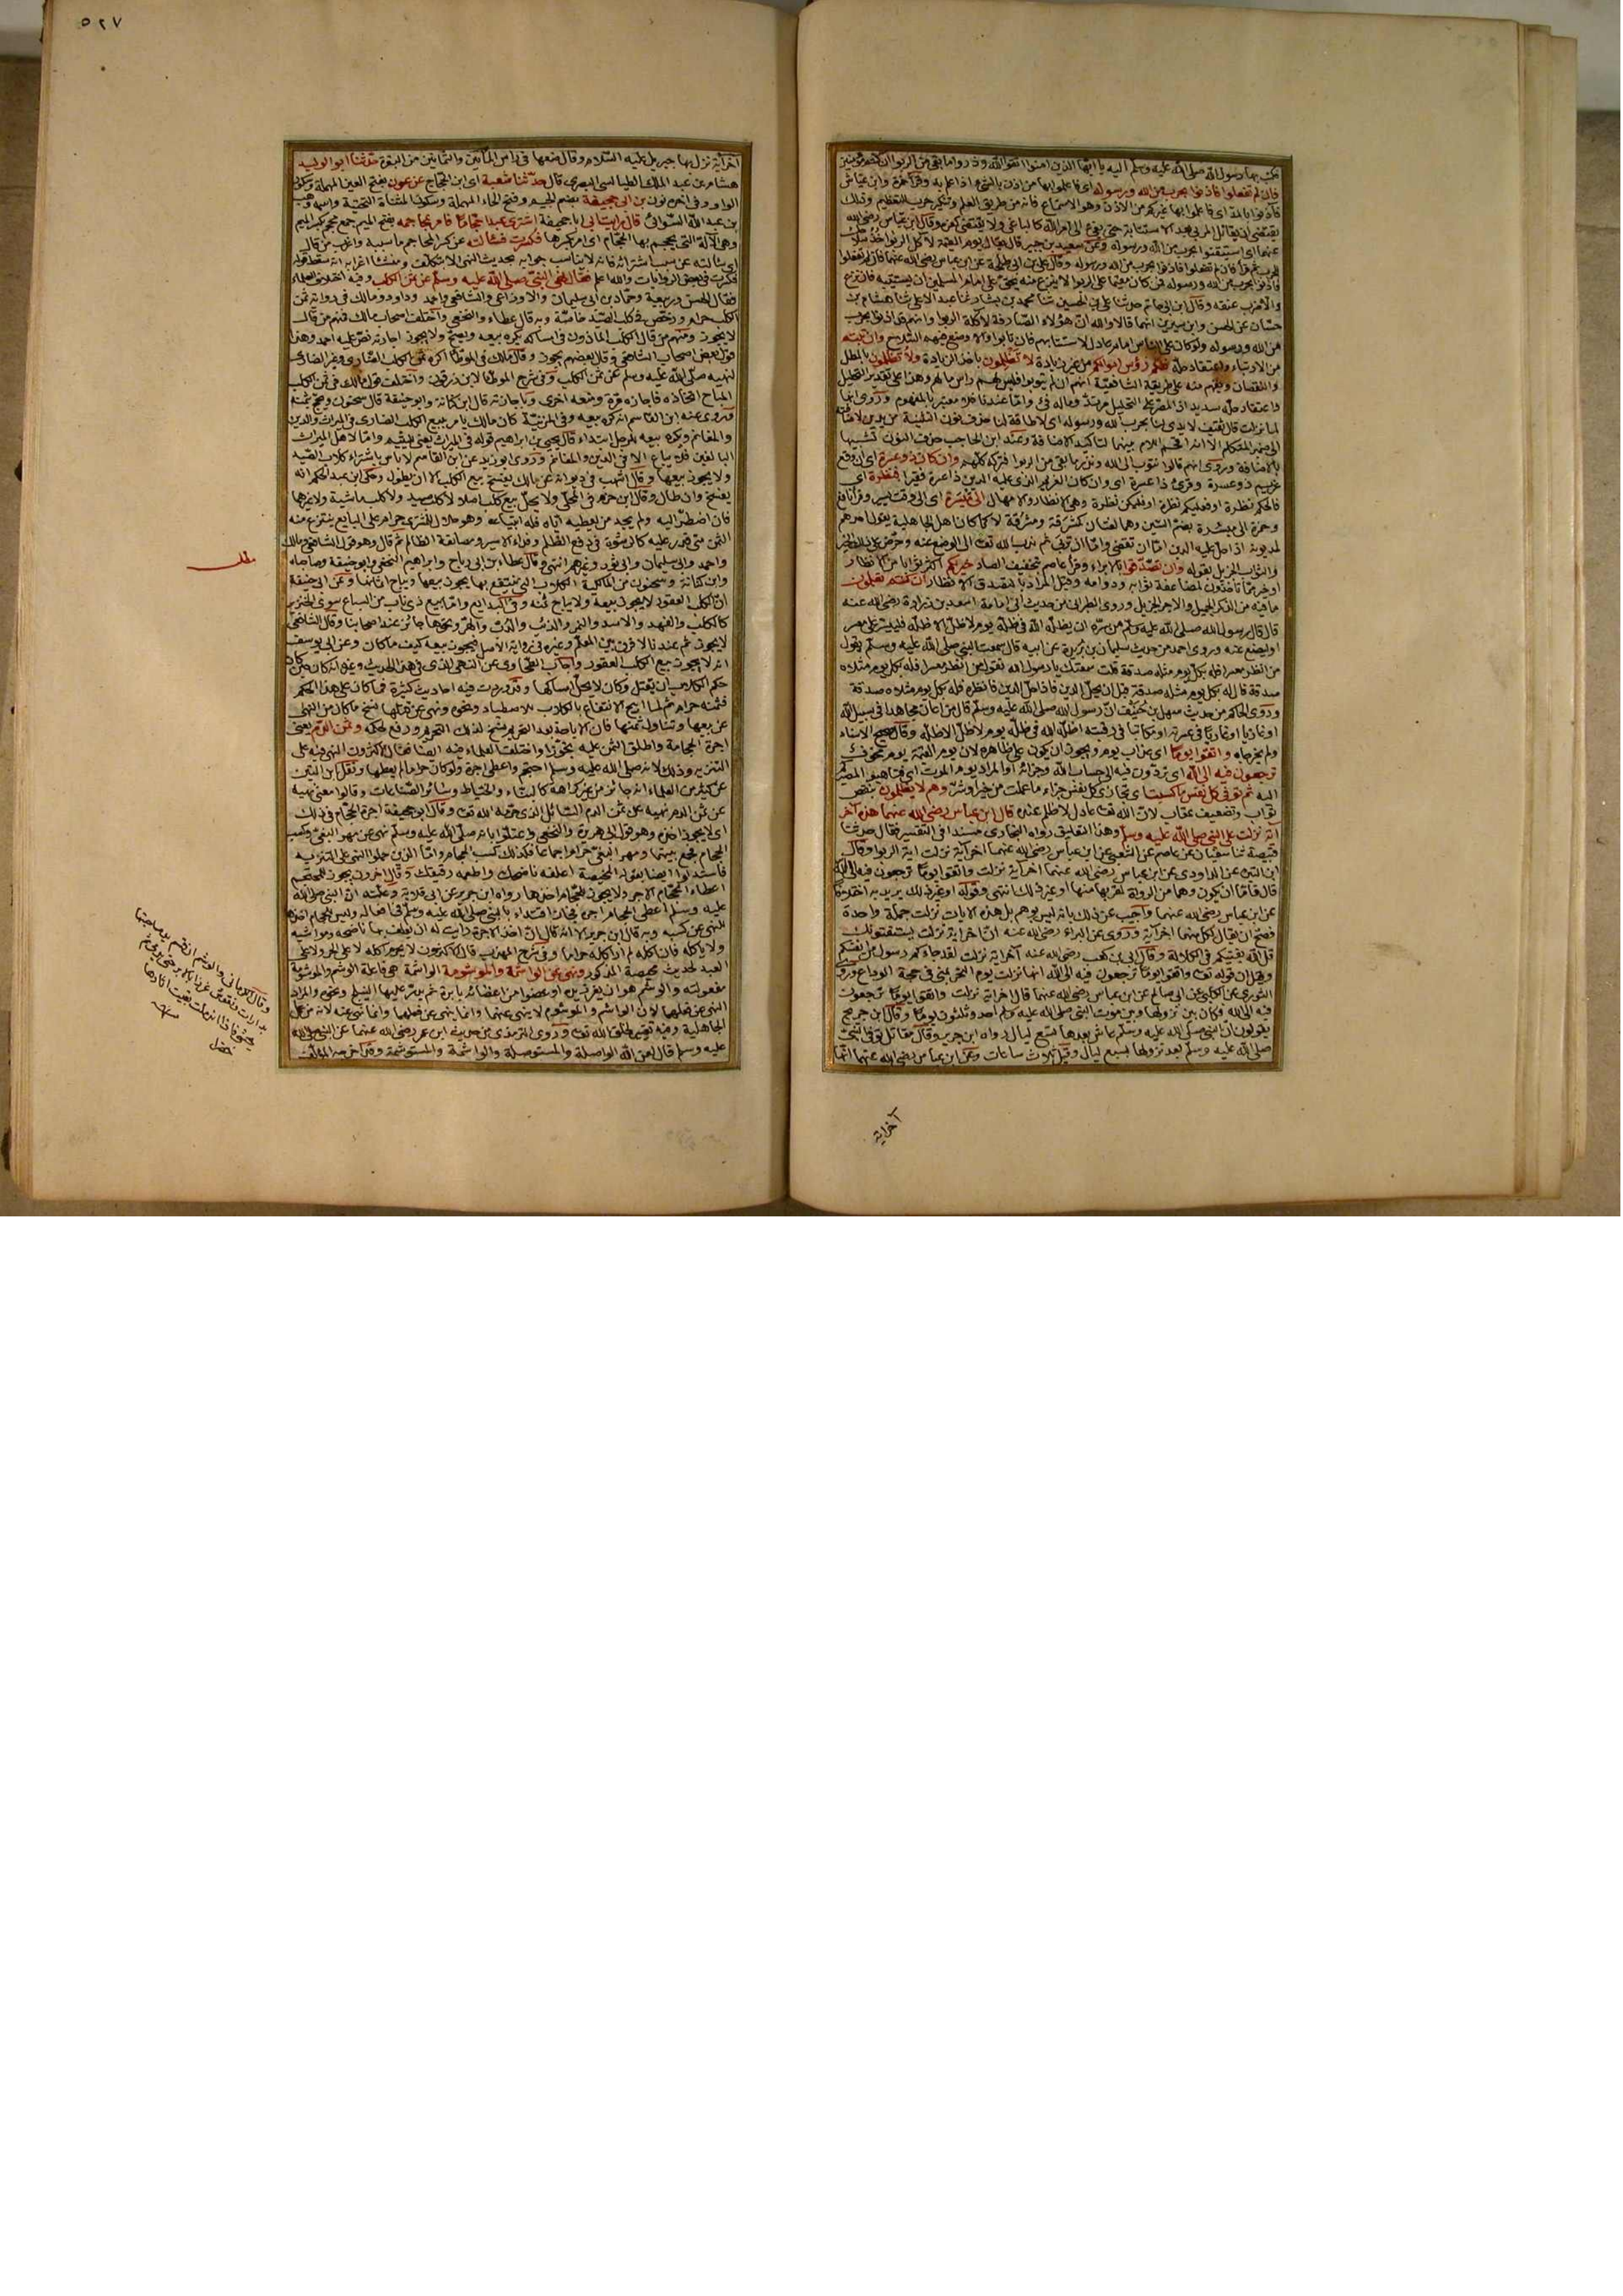 فكتب بها رسول الله صلى الله عليه وسلم اليه يا ايها الذين امنوا اتقوا الله وذروا ما بقي من الربوا ان كنتم مؤمنين
فان لم تفعلوا فاذنوا بحرب من الله ورسوله اى فاعلموا بها من اذن بالشئ اذا علم به وقرأ حمزة وابن عياش
فآذنوا بالمد اى فاعلموا بها غيركم من الاذن وهو الاستماع فانه من طريق العلم وتنكير حرب للتعظيم وذلك
يقتضى ان يقاتل المربى بعد الاستتابة حتى يفئ الى امر الله كالباغى ولا يقتضى كفره وقال ابن عباس رضى الله
عنهما اى استيقنوا بحرب من الله ورسوله وعن سعيد بن جبير قال يقال يوم القيمة لآكل الربوا خذ سلاحك
للحرب ثم قرأ فان لم تفعلوا فاذنوا بحرب من الله ورسوله وقال على بن ابى طلحة عن ابن عباس رضى الله عنهما فان لم تفعلوا
فاذنوا بحرب من الله ورسوله فمن كان مقيما على الربوا لا ينزع عنه يحق على امام المسلمين ان يستتيبه فان نزع
والا ضرب عنقه وقال ابن ابى حاتم حدثنا على بن الحسين ثنا محمد بن بشار ثنا عبد الاعلى ثنا هشام بن
حسان عن الحسن وابن سيرين انهما قالا والله ان هؤلاء الصيارفة لأكلة الربوا وانهم قد اذنوا بحرب
من الله ورسوله ولو كان على الناس امام عادل لاستتابهم فان تابوا والا وضع فيهم السلاح وان تبتم
من الارتباء واعتقاد حله فلكم رؤس اموالكم من غير زيادة لا تظلمون باخذ الزيادة ولا تظلمون بالمطل
والنقصان ويفهم منه على طريقة الشافعية انهم ان لم يتوبوا فليس لهم راس مالهم وهذا على تقدير التحليل
واعتقاد حله سديد اذ المصر على التحليل مرتد وماله فئ واما عندنا فلا معتبر بالمفهوم وروى انها
لما نزلت قال ثقيف لا يدى لنا بحرب الله ورسوله اى لا طاقة لنا حذف نون التثنية من يدين لاضافته
الى ضمير المتكلم الا انه اقحم اللام بينهما لتاكيد الاضافة وعند ابن الحاجب حذف النون تشبيها
بالاضافة وروى انهم قالوا نتوب الى الله ونذر ما بقى من الربوا فتركه كلهم وان كان ذو عسرة اى ان وقع
غريم ذو عسرة وقرئ ذا عسرة اى وان كان الغريم الذى عليه الدين ذا عسرة فقيرا فنظرة اى
فالحكم نظرة او فعليكم نظرة او فليكن نظرة وهى الانظار والامهال الى ميسرة اى الى وقت يسر وقرأ نافع
وحمزة الى ميسرة بضم السين وهما لغتان كمشرقة ومشرقة لا كما كان اهل الجاهلية يقول احدهم
لمديونه اذا حل عليه الدين اما ان تقضى واما ان تربى ثم ندب الله تعالى الى الوضع عنه وحرض على ذلك الخير
والثواب الجزيل بقوله وان تصدقوا بالابراء وقرأ عاصم بتخفيف الصاد خير لكم اكثر ثوابا من الانظار
او خير مما تأخذون لمضاعفة ثوابه ودوامه وقيل المراد بالتصدق الانظار ان كنتم تعلمون
ما فيه من الذكر الجميل والاجر الجزيل وروى الطبرانى من حديث ابى امامة اسعد بن زرارة رضى الله عنه
قال قال رسول الله صلى الله عليه وسلم من سره ان يظله الله فى ظله يوم لا ظل الا ظله فلييسر على معسر
او ليضع عنه وروى احمد من حديث سليمان بن بريدة عن ابيه قال سمعت النبى صلى الله عليه وسلم يقول
من انظر معسرا فله بكل يوم مثله صدقة قلت سمعتك يا رسول الله تقول من انظر معسرا فله بكل يوم مثلاه
صدقة قال له بكل يوم مثله صدقة قبل ان يحل الدين فاذا حل الدين فانظره فله بكل يوم مثلاه صدقة
وروى الحاكم من حديث سهل بن حنيف ان رسول الله صلى الله عليه وسلم قال من اعان مجاهدا فى سبيل الله
او غازيا او غارما فى عسرته او مكاتبا فى رقبته اظله الله فى ظله يوم لا ظل الا ظله وقال صحيح الاسناد
ولم يخرجاه واتقوا يوما اى عذاب يوم ويجوز ان يكون على ظاهره لان يوم القيمة يوم مخوف
ترجعون فيه الى الله اى تردون فيه الى حساب الله وجزائه او المراد يوم الموت اى فتاهبوا لمصيركم
اليه ثم توفى كل نفس ما كسبت اى تجازى كل نفس جزاء ما عملت من خير او شر وهم لا يظلمون بنقص
ثواب وتضعيف عقاب لان الله تعالى عادل لا ظلم عنده قال ابن عباس رضى الله عنهما هذه آخر
آية نزلت على النبى صلى الله عليه وسلم وهذا التعليق رواه البخارى مسندا فى التفسير فقال حدثنا
قبيصة ثنا سفيان عن عاصم عن الشعبى عن ابن عباس رضى الله عنهما اخر آية نزلت اية الربوا وقال
ابن التين عن الداودى عن ابن عباس رضى الله عنهما اخر آية نزلت واتقوا يوما ترجعون فيه الى الله
قال فاما ان يكون وهما من الرواة لقربها منها او غير ذلك انتهى وقوله او غير ذلك يريد به اختلافا
عن ابن عباس رضى الله عنهما واجيب عن ذلك بانه ليس بوهم بل هذه الايات نزلت جملة واحدة
فصح ان يقال لكل منهما اخر آية وروى عن البراء رضى الله عنه ان اخر آية نزلت يستفتونك
قل الله يفتيكم فى الكلالة وقال ابى بن كعب رضى الله عنه آخر آية نزلت لقد جاءكم رسول من انفسكم
وقيل ان قوله تعالى واتقوا يوما ترجعون فيه الى الله انها نزلت يوم النحر بمنى فى حجة الوداع وروى
الثورى عن الكلبى عن ابى صالح عن ابن عباس رضى الله عنهما قال اخر آية نزلت واتقوا يوما ترجعون
فيه الى الله فكان بين نزولها وبين موت النبى صلى الله عليه وسلم احد وثلثون يوما وقال ابن جريج
يقولون ان النبى صلى الله عليه وسلم عاش بعدها تسع ليال رواه ابن جرير وقال مقاتل توفى النبى
صلى الله عليه وسلم بعد نزولها بسبع ليال وقيل ثلاث ساعات وعن ابن عباس رضى الله عنهما انها
آخر آية
٥٢٧
آخر آية نزل بها جبريل عليه السلام وقال ضعها فى راس المأتين والثمانين من البقرة حدثنا ابو الوليد
هشام بن عبد الملك الطيالسى البصرى قال حدثنا شعبة اى ابن الحجاج عن عون بفتح العين المهملة وسكون
الواو وفى اخره نون بن ابى جحيفة بضم الجيم وفتح الحاء المهملة وسكون المثناة التحتية واسمه وهب
بن عبد الله السوائى قال رايت ابى ابا جحيفة اشترى عبدا حجاما فامر بمحاجمه بفتح الميم جمع محجم بكسر الميم
وهى الآلة التى يحجم بها الحجام اى امر بكسرها فكسرت فسألته عن كسر المحاجم ما سببه واغرب من قال
اى سألته عن سبب اشترائه فانه لا يناسب جوابه بحديث النهى الا بتكلف ومنشأ اغرابه انه سقط قوله
فكسرت فى بعض الروايات والله اعلم فقال نهى النبى صلى الله عليه وسلم عن ثمن الكلب وفيه اختلاف العلماء
فقال الحسن وربيعة وحماد بن ابى سليمان والاوزاعى والشافعى واحمد وداود ومالك فى رواية ثمن
الكلب حرام ورخص فى كلب الصيد خاصة وبه قال عطاء والنخعى واختلف اصحاب مالك فمنهم من قال
لا يجوز ومنهم من قال الكلب الماذون فى امساكه يكره بيعه ويصح ولا يجوز اجارته نص عليه احمد وهذا
قول بعض اصحاب الشافعى وقال بعضهم يجوز وقال مالك فى الموطأ اكره ثمن الكلب الضارى وغير الضارى
لنهيه صلى الله عليه وسلم عن ثمن الكلب وفى شرح الموطأ لابن زرقون واختلف قول مالك فى ثمن الكلب
المباح اتخاذه فاجازه مرة ومنعه اخرى وباجازته قال ابن كنانة وابو حنيفة قال سحنون ويحج بثمنه
وروى عنه ابن القاسم انه كره بيعه وفى المزنية كان مالك يامر ببيع الكلب الضارى فى الميراث والدين
والمغانم ويكره بيعه للرجل ابتداء قال يحيى بن ابراهيم قوله فى الميراث يعنى لليتيم واما لاهل الميراث
البالغين فلا يباع الا فى الدين والمغانم وروى ابو زيد عن ابن القاسم لا باس باشتراء كلاب الصيد
ولا يجوز بيعها وقال اشهب فى ديوانه عن مالك يفسخ بيع الكلب الا ان يطول وحكى ابن عبد الحكم انه
يفسخ وان طال وقال ابن حزم فى المحلى ولا يحل بيع كلب اصلا لا كلب صيد ولا كلب ماشية ولا غيرهما
فان اضطر اليه ولم يجد من يعطيه اياه فله ابتياعه وهو حلال للمشترى حرام على البايع ينتزع منه
الثمن متى قدر عليه كالرشوة فى دفع الظلم وفداء الاسير ومصانعة الظالم ثم قال وهو قول الشافعى ومالك
واحمد وابى سليمان وابى ثور وغيرهم انتهى وقال عطاء بن ابى رباح وابراهيم النخعى وابو حنيفة وصاحباه
وابن كنانة وسحنون من المالكية الكلاب التى ينتفع بها يجوز بيعها ويباح اثمانها وعن ابى حنيفة
ان الكلب العقور لا يجوز بيعه ولا يباح ثمنه وفى البدايع واما بيع ذى ناب من السباع سوى الخنزير
كالكلب والفهد والاسد والنمر والذئب والدب والهر ونحوها جائز عند اصحابنا وقال الشافعى
لا يجوز ثم عندنا لا فرق بين المعلم وغيره فى رواية الاصل فيجوز بيعه كيف ما كان وعن ابى يوسف
انه لا يجوز بيع الكلب العقور واجاب الطحاوى عن النهى الذى فى هذا الحديث وغيره انه كان حين كان
حكم الكلاب ان يقتل وكان لا يحل امساكها وقد وردت فيه احاديث كثيرة فما كان على هذا الحكم
فثمنه حرام ثم لما ابيح الانتفاع بالكلاب للاصطياد ونحوه ونهى عن قتلها نسخ ما كان من النهى
عن بيعها وتناول ثمنها فان الاباحة بعد التحريم نسخ لذلك التحريم ورفع لحكمه وثمن الدم يعنى
اجرة الحجامة واطلق الثمن عليه تجوزا واختلف العلماء فيه ايضا فقال الاكثرون النهى فيه على
التنزيه وذلك لانه صلى الله عليه وسلم احتجم واعطى اجرة ولو كان حراما لم يعطها ونقل ابن التين
عن كثير من العلماء انه جائز من غير كراهة كالبناء والخياط وسائر الصناعات وقالوا معنى نهيه
عن ثمن الدم نهيه عن ثمن الدم السائل الذى حرمه الله تعالى وقال ابو جحيفة اجرة الحجام فى ذلك
اى لا يجوز اخذه وهو قول ابى هريرة والنخعى واعتلوا بانه صلى الله عليه وسلم نهى عن مهر البغى وكسب
الحجام فجمع بينهما ومهر البغى حرام اجماعا فكذلك كسب الحجام واما الذين حملوا النهى على التنزيه
فاستدلوا ايضا بقوله لمحيصة اعلفه ناضحك واطعمه رقيقك وقال اخرون يجوز للمحتجم
اعطاء الحجام الاجر ولا يجوز للحجام اخذها رواه ابن جرير عن ابى قلابة وعلته ان النبى صلى الله
عليه وسلم اعطى الحجام اجره فجاز اقتداء بالنبى صلى الله عليه وسلم فى افعاله وليس للحجام اخذها
للنهى عن كسبه وبه قال ابن جرير الا انه قال ان اخذ الاجرة رايت له ان يعلف بها ناضحه ومواشيه
ولا ياكله فان اكله لم ار اكله حراما وفى شرح المهذب قال الاكثرون لا يحرم اكله لا على الحر ولا على
العبد لحديث محيصة المذكور ونهى عن الواشمة والموشومة الواشمة هى فاعلة الوشم والموشومة
مفعولته والوشم هو ان يغرز يده او عضوا من اعضائه بابرة ثم يذر عليها النيلج ونحوه والمراد
النهى عن فعلهما لان الواشم والموشوم لا ينهى عنهما وانما ينهى عن فعلهما وانما نهى عنه لانه من عمل
الجاهلية وفيه تغيير لخلق الله تعالى وروى الترمذى من حديث ابن عمر رضى الله عنهما عن النبى صلى الله
عليه وسلم قال لعن الله الواصلة والمستوصلة والواشمة والمستوشمة وقرأ اخرجه المؤلف
مطلب
وقال الكرمانى والوشم ان